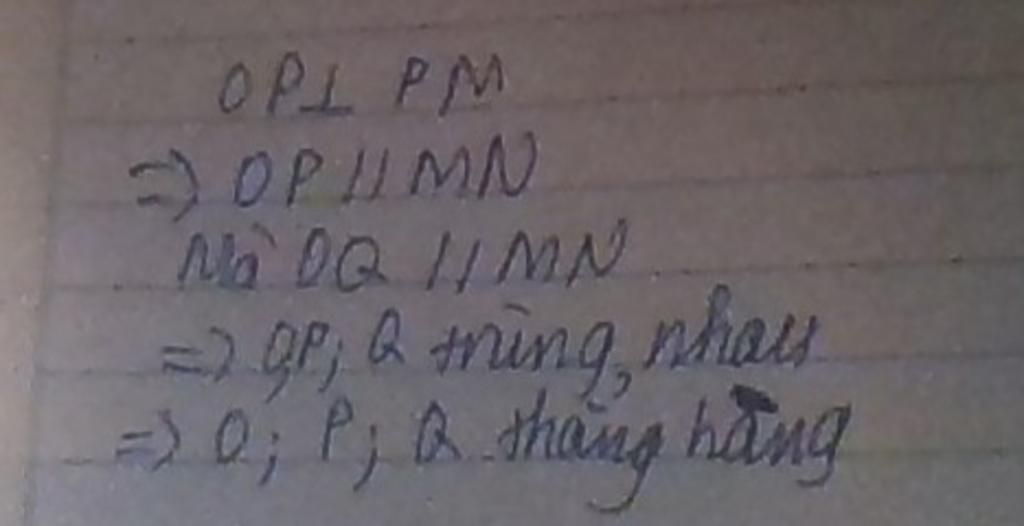 OP⊥ PM
=> OP // MN
Mà OQ // MN
=> O,P; Q trùng, nhau
=> O; P; Q thẳng hàng